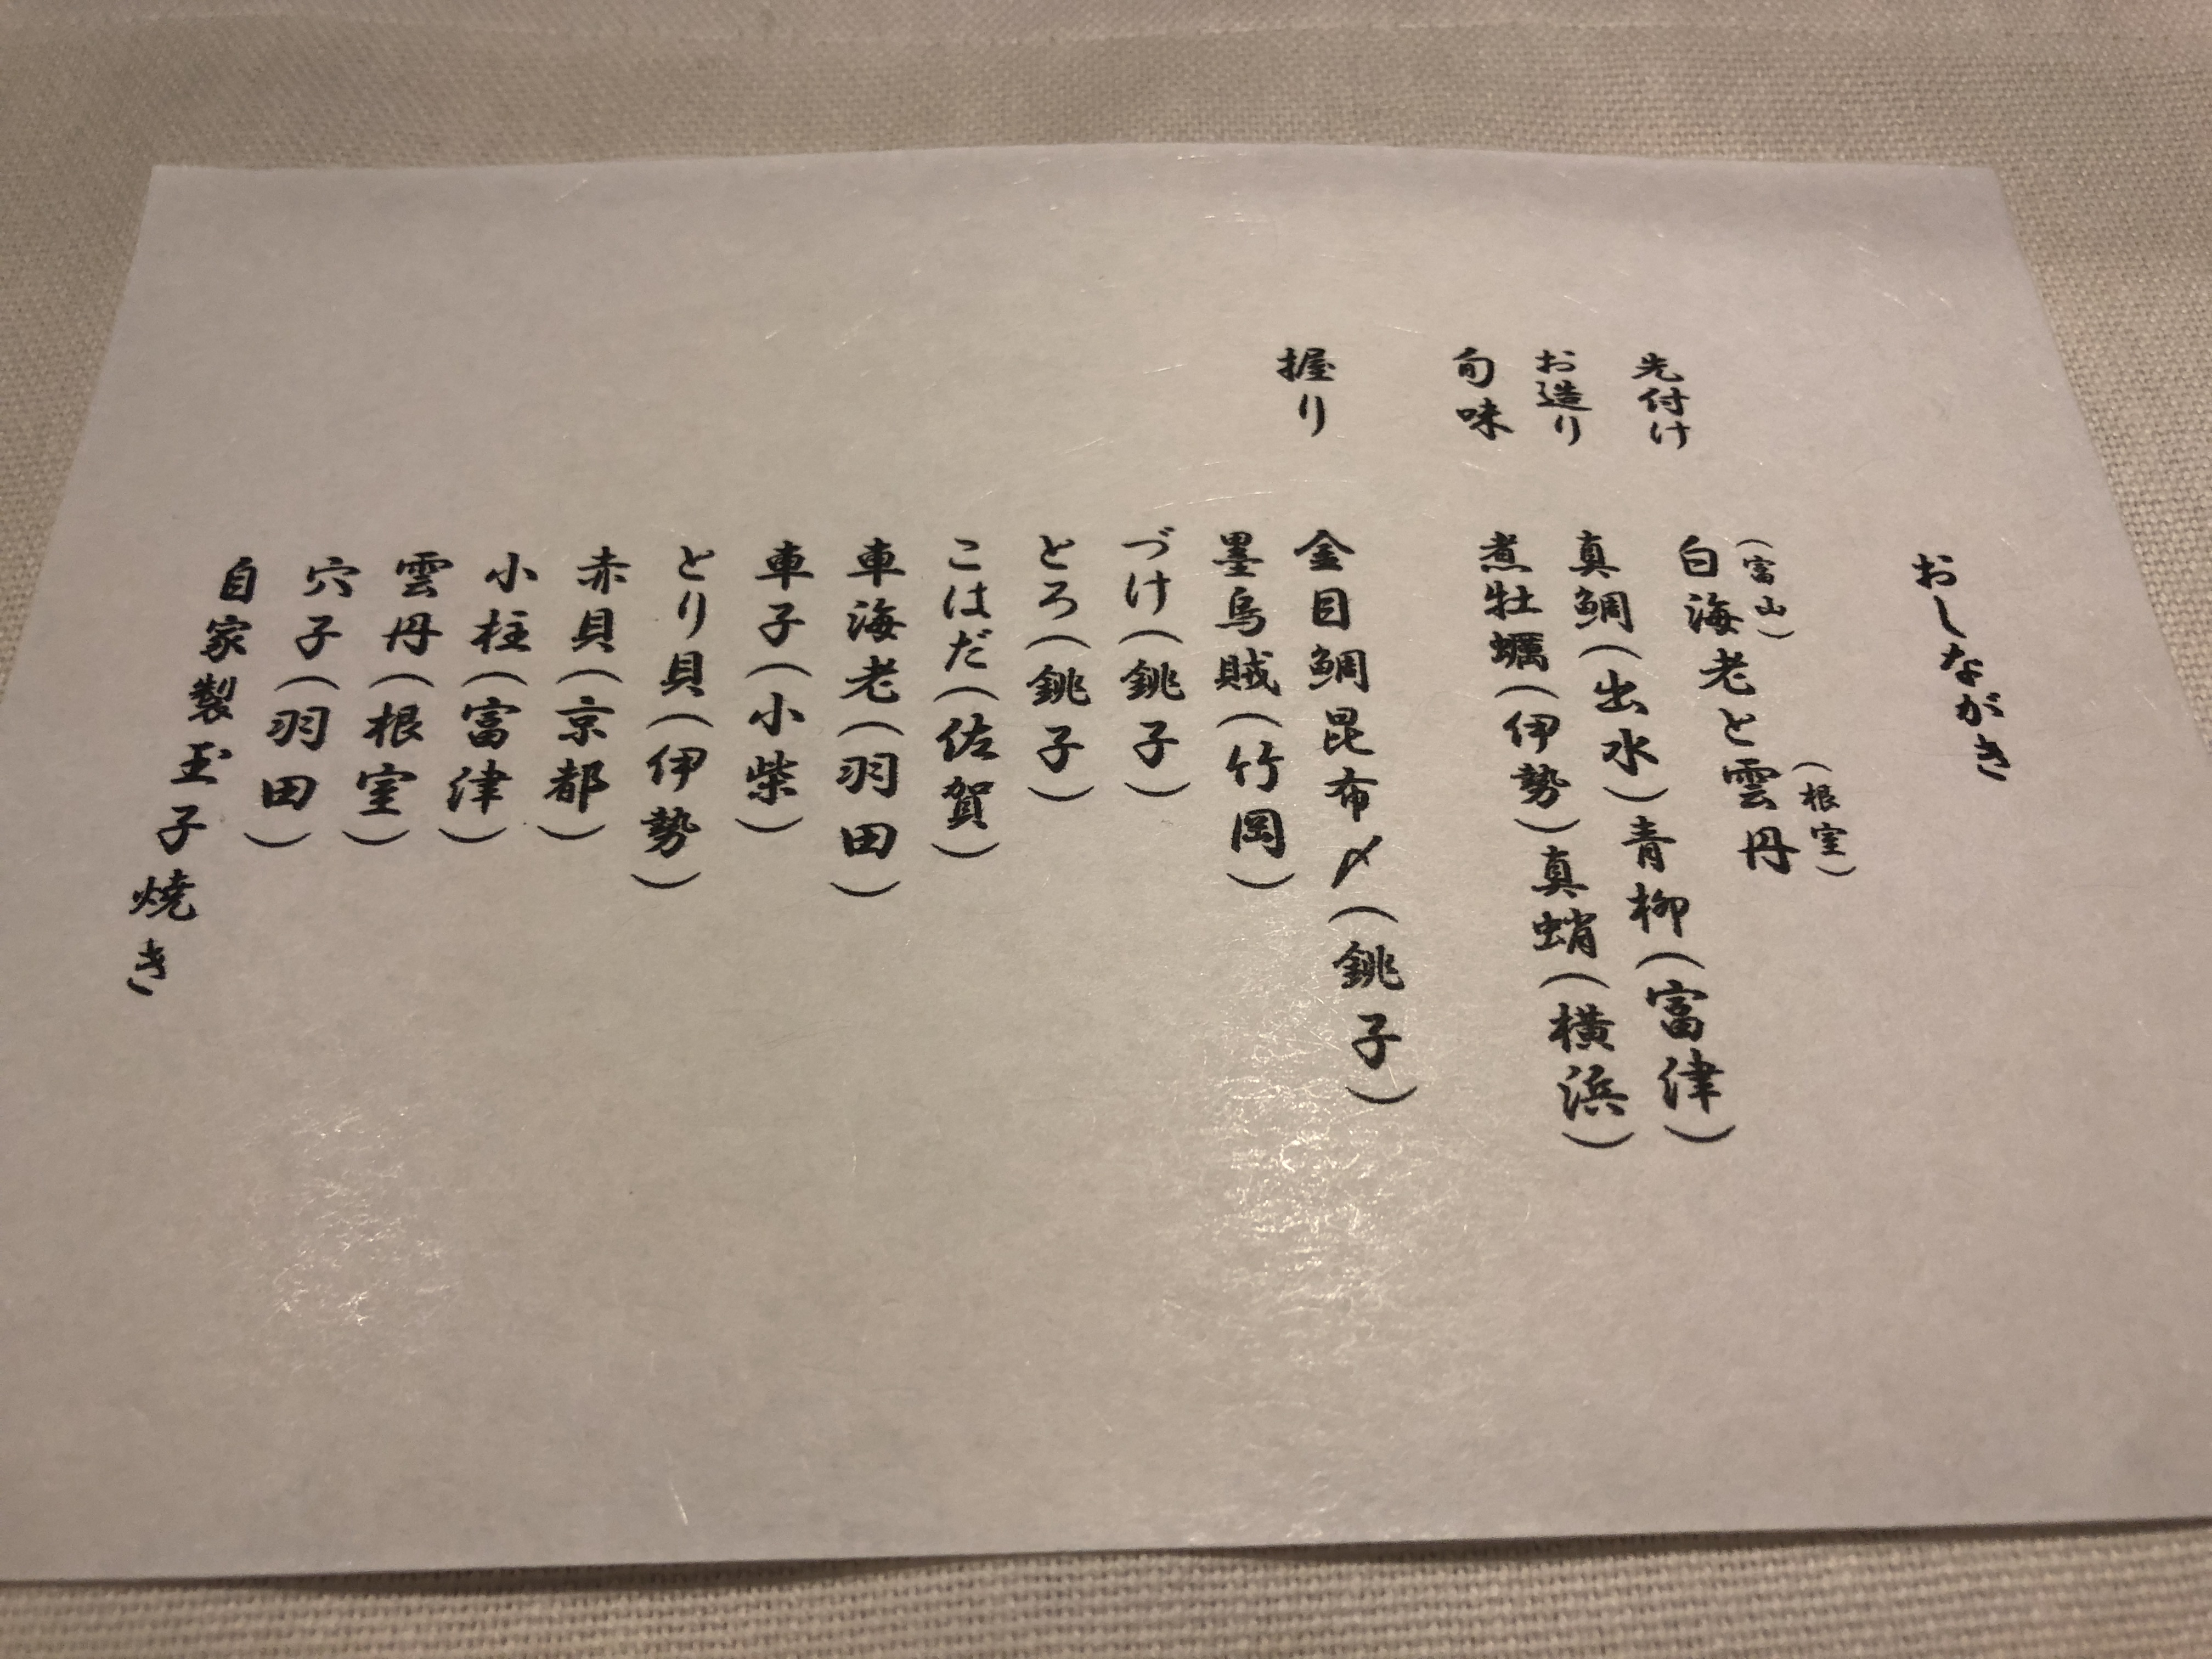 おしながき
先付け　白海老（富山）と雲丹（根室）
お造り　真鯛（出水）青柳（富津）
旬味　煮牡蠣（伊勢）真蛸（横浜）
握り　金目鯛昆布〆（銚子）
墨烏賊（竹岡）
づけ（銚子）
とろ（銚子）
こはだ（佐賀）
車海老（羽田）
車子（小柴）
とり貝（伊勢）
赤貝（京都）
小柱（富津）
雲丹（根室）
穴子（羽田）
自家製玉子焼き